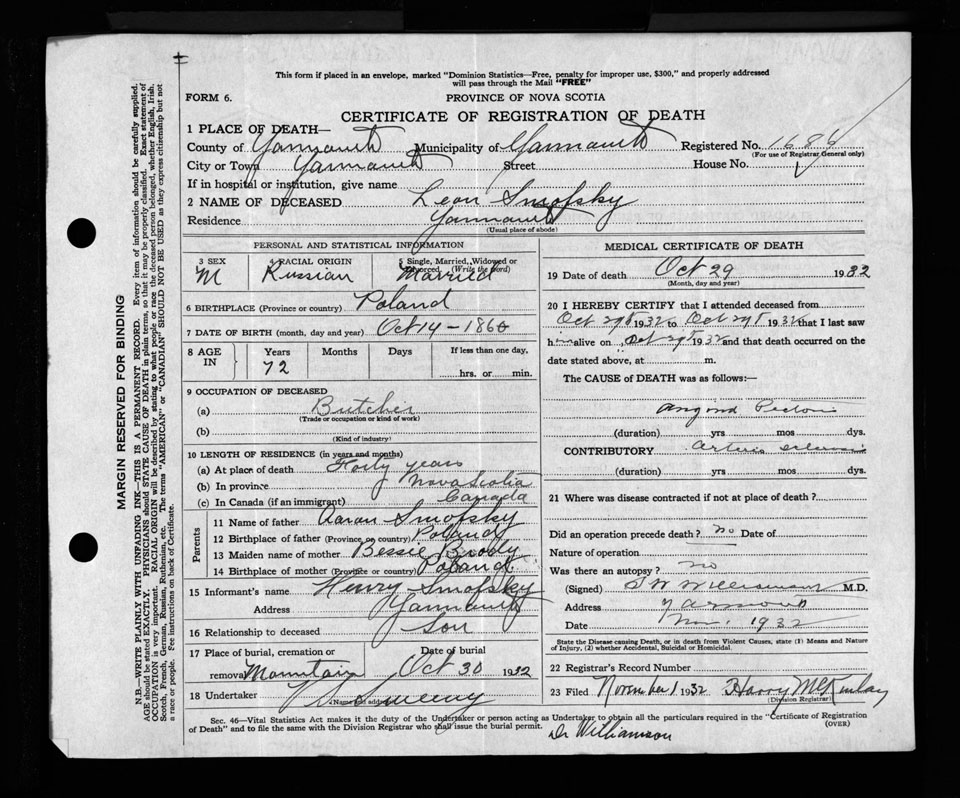 This form if placed in an envelope, marked "Dominion Statistics—Free, penalty for improper use, $300," and properly addressed
will pass through the Mail "FREE"
FORM 6.
PROVINCE OF NOVA SCOTIA
CERTIFICATE OF REGISTRATION OF DEATH
1 PLACE OF DEATH—
County of Yarmouth Municipality of Yarmouth Registered No. 1684
(For use of Registrar General only)
City or Town Yarmouth Street House No.
If in hospital or institution, give name
2 NAME OF DECEASED Leon Smofsky
Residence Yarmouth
(Usual place of abode)
PERSONAL AND STATISTICAL INFORMATION
3 SEX M
4 RACIAL ORIGIN Russian
5 Single, Married, Widowed or Divorced (Write the word) Married
6 BIRTHPLACE (Province or country) Poland
7 DATE OF BIRTH (month, day and year) Oct 14 - 1860
8 AGE IN Years Months Days If less than one day,
72 hrs. or min.
9 OCCUPATION OF DECEASED
(a) Butcher
(Trade or occupation or kind of work)
(b)
(Kind of industry)
10 LENGTH OF RESIDENCE (in years and months)
(a) At place of death Forty years
(b) In province Nova Scotia
(c) In Canada (if an immigrant) Canada
Parents
11 Name of father Aaron Smofsky
12 Birthplace of father (Province or country) Poland
13 Maiden name of mother Bessie Brody
14 Birthplace of mother (Province or country) Poland
15 Informant's name Henry Smofsky
Address Yarmouth
16 Relationship to deceased Son
17 Place of burial, cremation or removal Mountain
Date of burial Oct 30 1932
18 Undertaker V S Sweeny
(Name and address)
MEDICAL CERTIFICATE OF DEATH
19 Date of death Oct 29 1932
(Month, day and year)
20 I HEREBY CERTIFY that I attended deceased from
Oct 29th 1932 to Oct 29th 1932 that I last saw
him alive on Oct 29th 1932 and that death occurred on the
date stated above, at m.
The CAUSE of DEATH was as follows:—
Angina Pectoris
(duration) yrs mos dys.
CONTRIBUTORY
(duration) yrs mos dys.
21 Where was disease contracted if not at place of death?
Did an operation precede death? no Date of
Nature of operation
Was there an autopsy? no
(Signed) Williamson M.D.
Address Yarmouth
Date Nov. 1 1932
State the Disease causing Death, or in death from Violent Causes, state (1) Means and Nature
of Injury, (2) whether Accidental, Suicidal or Homicidal.
22 Registrar's Record Number
23 Filed November 1 1932 Harry McKinlay
(Division Registrar)
Sec. 46—Vital Statistics Act makes it the duty of the Undertaker or person acting as Undertaker to obtain all the particulars required in the "Certificate of Registration
of Death" and to file the same with the Division Registrar who shall issue the burial permit. (OVER)
Dr Williamson
MARGIN RESERVED FOR BINDING
N.B.—WRITE PLAINLY WITH UNFADING INK—THIS IS A PERMANENT RECORD. Every item of information should be carefully supplied.
AGE should be stated EXACTLY. PHYSICIANS should STATE CAUSE OF DEATH in plain terms, so that it may be properly classified. Exact statement of
OCCUPATION is very important. RACIAL ORIGIN will be described by stating to what people or race the deceased person belonged, whether English, Irish,
Scotch, French, German, Russian, Ruthenian, etc. The terms "AMERICAN" or "CANADIAN" SHOULD NOT BE USED as they express citizenship but not
a race or people. Fee instructions on back of Certificate.